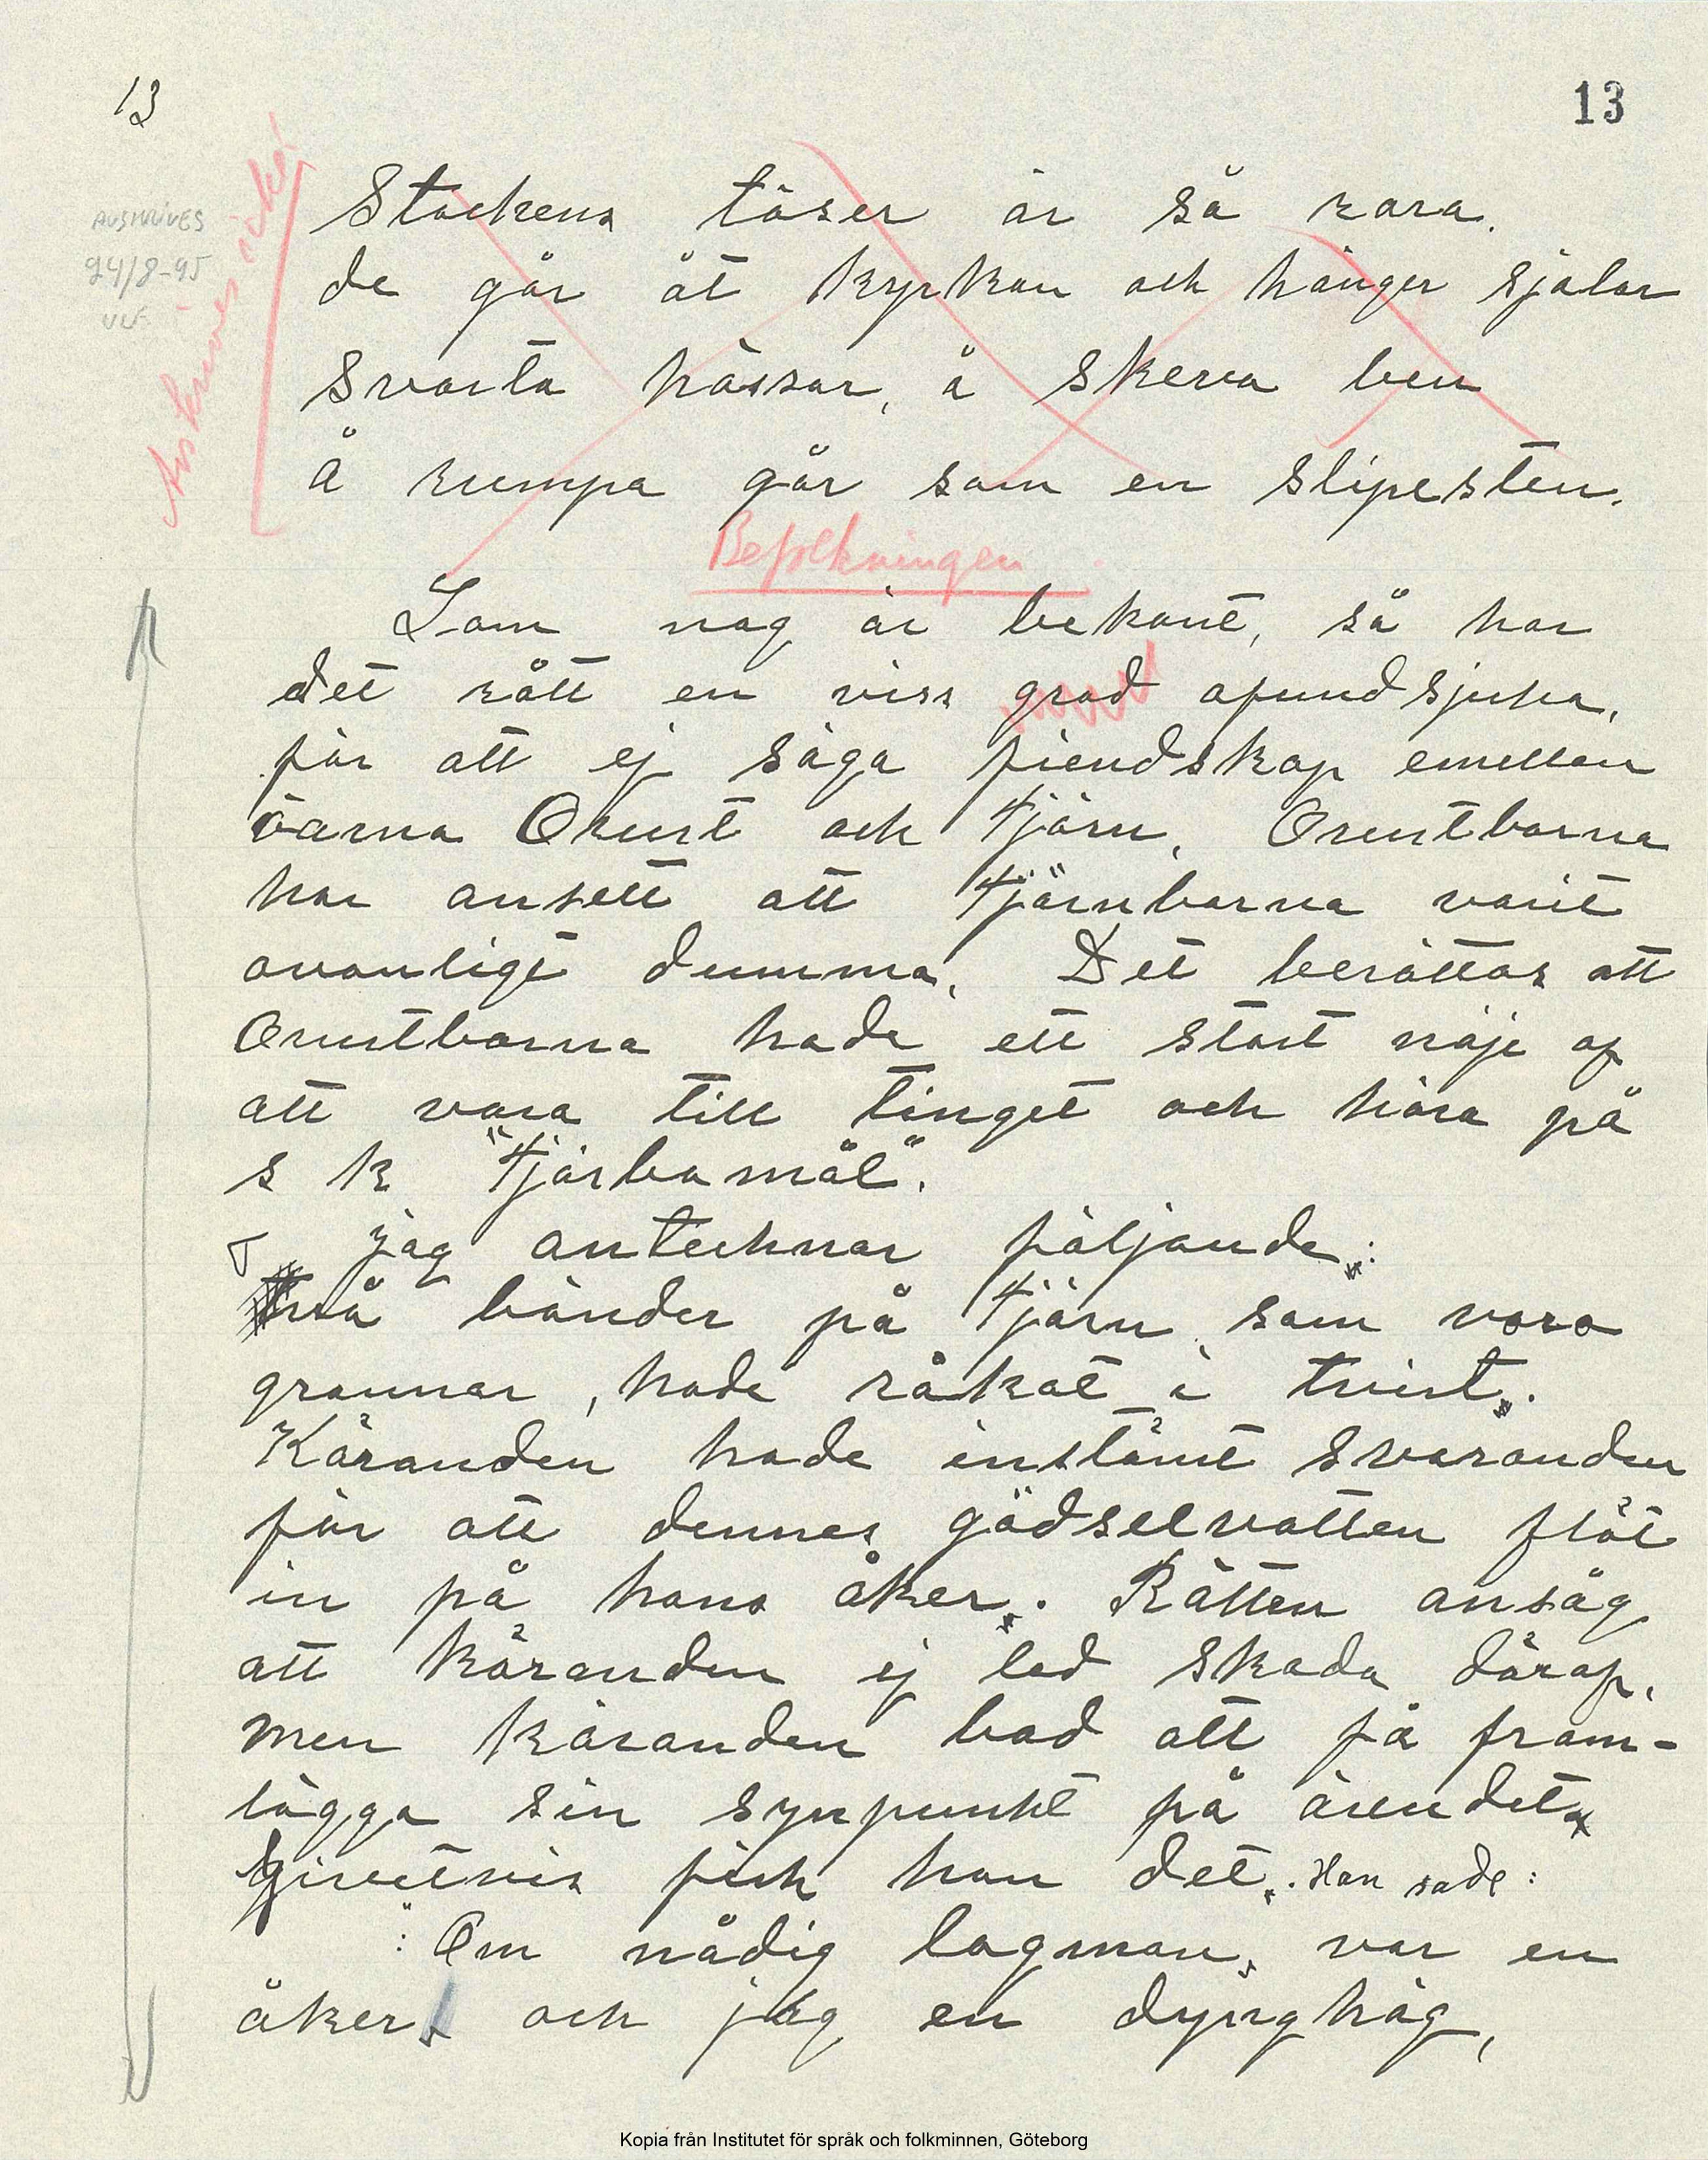 13
13
Avskrives icke.
AVSKRIVES
24/8-95
ULF
Stockens töser är så rara.
de går åt kyrkan och hänger sjalar
svarta hässar, å skeva ben
Å rumpa går som en slipesten.
Befolkningen
Som nog är bekant, så har
det rått en viss grad afundsjuka,
för att ej säga fiendskap emellan
öarna Orust och Tjörn. Orustborna
har ansett att Tjörnborna varit
ovanligt dumma. Det berättas att
Orustborna hade ett stort nöje af
att vara till tinget och höra på
s k "Tjörbamål".
jag antecknar följande:
Två bönder på Tjörn som voro
grannar, hade råkat i tvist.
Käranden hade instämt svaranden
för att dennes gödselvatten flöt
in på hans åker. Rätten ansåg
att käranden ej led skada däraf,
men käranden bad att få fram-
lägga sin synpunkt på ärendet
givetvis fick han det. Han sade:
: "Om nådig lagman var en
åker och jag en dynghög,
Kopia från Institutet för språk och folkminnen, Göteborg